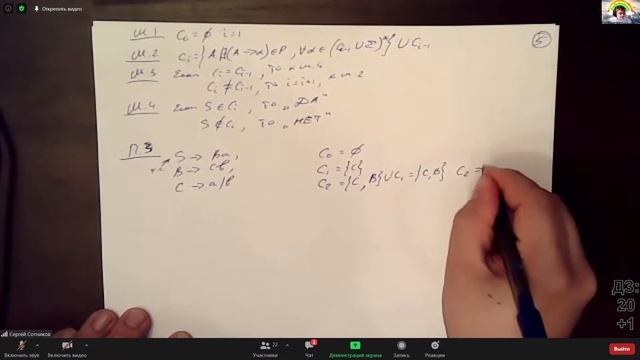 Открепить Диалог
5
Ш.1 C₀ = ∅ i=1
Ш.2 Cᵢ = {A | ∃(A→α)∈P, ∀α∈(Cᵢ₋₁∪Σ)*} ∪ Cᵢ₋₁
Ш.3 Если Cᵢ = Cᵢ₋₁, то к ш.4
Cᵢ ≠ Cᵢ₋₁, то i=i+1, к ш.2
Ш.4 Если S∈Cᵢ, то „ДА“
S∉Cᵢ, то „НЕТ“
П.3
S → Ba, C₀ = ∅
B → Cb, C₁ = {C}
C → a|b C₂ = {C, B}∪C₁ = {C, B} C₂ ≠
ДЗ:
20
+1
Сергей Сотников
Включить звук
Включить видео
22
Участники
1
Чат
Демонстрация экрана
Запись
Реакции
Выйти